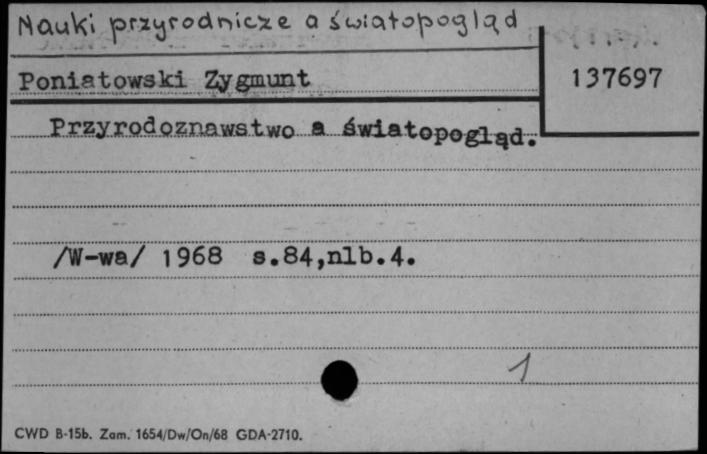 Nauki przyrodnicze a światopogląd
Poniatowski Zygmunt
137697
Przyrodoznawstwo a światopogląd.
/W-wa/ 1968 s.84,nlb.4.
1
CWD B-15b. Zam. 1654/Dw/On/68 GDA-2710.